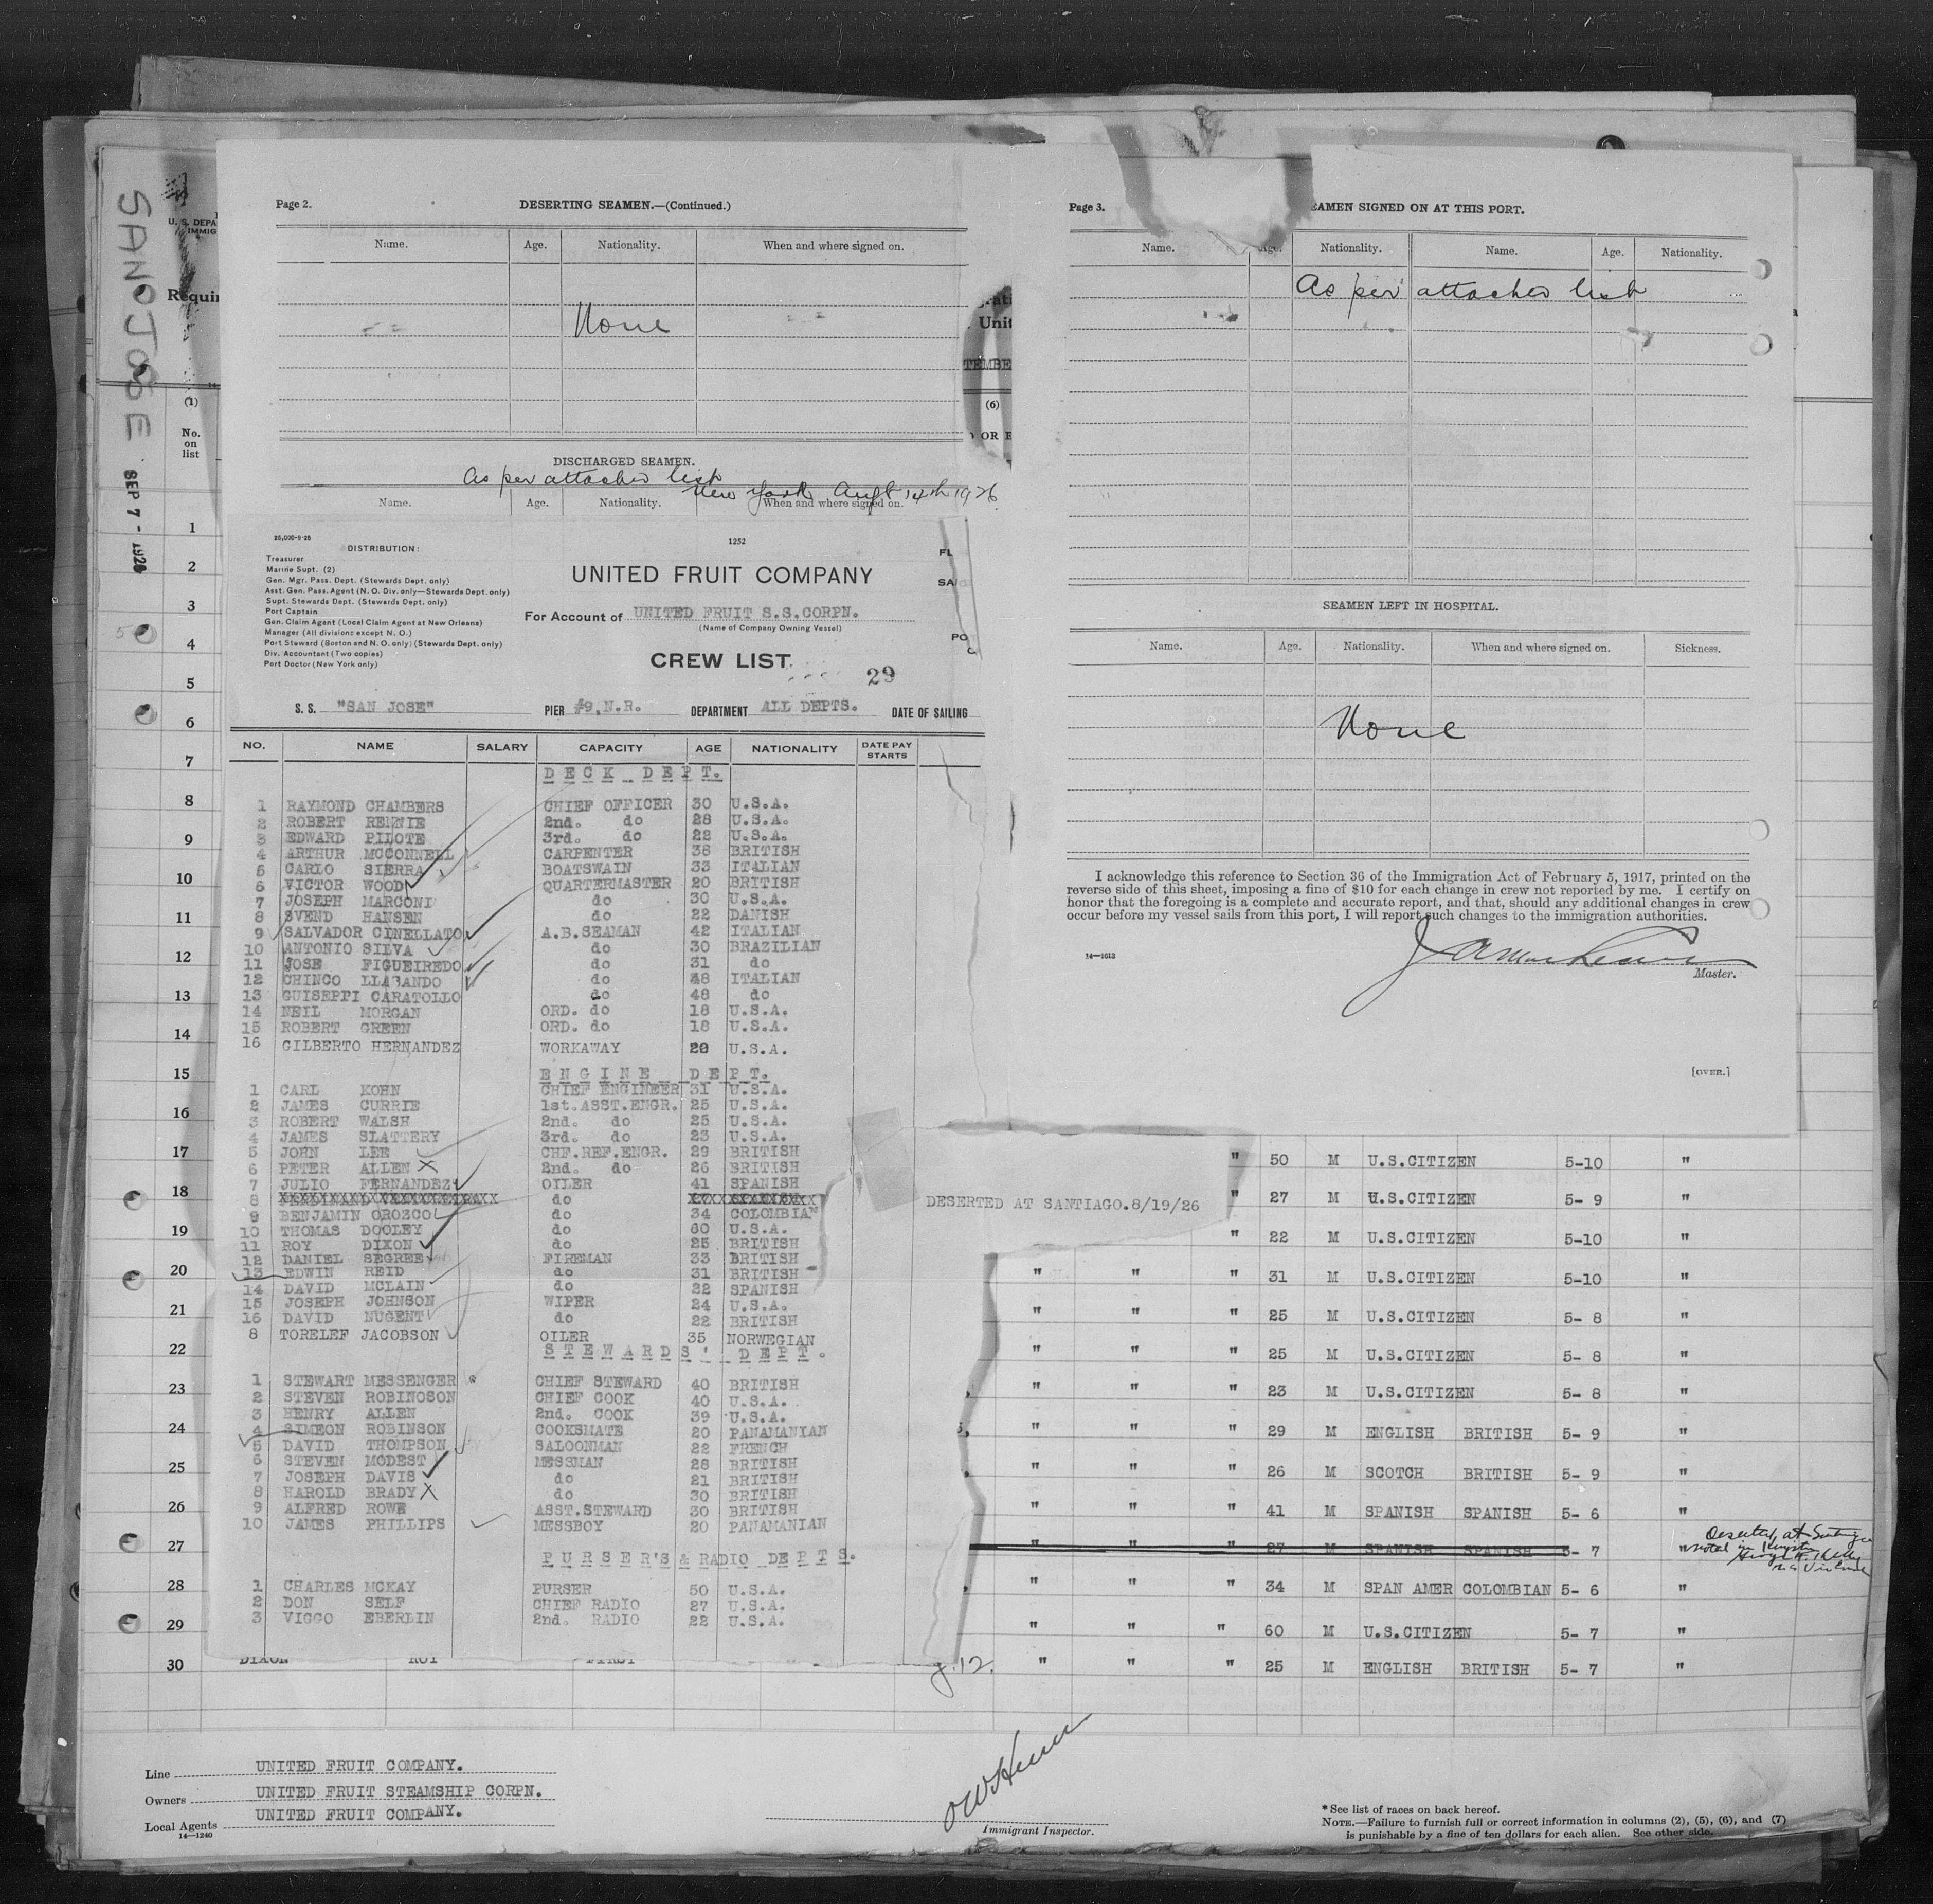 SAN JOSE
SEP 7 - 1926
U. S. DEPA
IMMIG
Requir
(1)
No.
on
list
1
2
3
4
5
6
7
8
9
10
11
12
13
14
15
16
17
18
19
20
21
22
23
24
25
26
27
28
29
30
Page 2.
DESERTING SEAMEN.—(Continued.)
Name. Age. Nationality. When and where signed on.
None
DISCHARGED SEAMEN.
As per attached list
New York Augt 14th 1926
Name. Age. Nationality. When and where signed on.
25,000-9-25
DISTRIBUTION:
Treasurer
Marine Supt. (2)
Gen. Mgr. Pass. Dept. (Stewards Dept. only)
Asst. Gen. Pass. Agent (N. O. Div. only—Stewards Dept. only)
Supt. Stewards Dept. (Stewards Dept. only)
Port Captain
Gen. Claim Agent (Local Claim Agent at New Orleans)
Manager (All divisions except N. O.)
Port Steward (Boston and N. O. only) (Stewards Dept. only)
Div. Accountant (Two copies)
Port Doctor (New York only)
1252
UNITED FRUIT COMPANY
For Account of UNITED FRUIT S.S.CORPN.
(Name of Company Owning Vessel)
CREW LIST
29
S. S. "SAN JOSE" PIER #9.N.R. DEPARTMENT ALL DEPTS. DATE OF SAILING
NO. NAME SALARY CAPACITY AGE NATIONALITY DATE PAY STARTS
DECK DEPT.
1 RAYMOND CHAMBERS CHIEF OFFICER 30 U.S.A.
2 ROBERT RENNIE 2nd. do 28 U.S.A.
3 EDWARD PILOTE 3rd. do 22 U.S.A.
4 ARTHUR MCCONNELL CARPENTER 38 BRITISH
5 CARLO SIERRA BOATSWAIN 33 ITALIAN
6 VICTOR WOOD QUARTERMASTER 20 BRITISH
7 JOSEPH MARCONI do 30 U.S.A.
8 SVEND HANSEN do 22 DANISH
9 SALVADOR CINELLATO A.B.SEAMAN 42 ITALIAN
10 ANTONIO SILVA do 30 BRAZILIAN
11 JOSE FIGUEIREDO do 31 do
12 CHINCO LLABANDO do 48 ITALIAN
13 GUISEPPI CARATOLLO do 48 do
14 NEIL MORGAN ORD. do 18 U.S.A.
15 ROBERT GREEN ORD. do 18 U.S.A.
16 GILBERTO HERNANDEZ WORKAWAY 28 U.S.A.
ENGINE DEPT.
1 CARL KOHN CHIEF ENGINEER 31 U.S.A.
2 JAMES CURRIE 1st.ASST.ENGR. 25 U.S.A.
3 ROBERT WALSH 2nd. do 25 U.S.A.
4 JAMES SLATTERY 3rd. do 23 U.S.A.
5 JOHN LEE CHF.REF.ENGR. 29 BRITISH
6 PETER ALLEN 2nd. do 26 BRITISH
7 JULIO FERNANDEZ OILER 41 SPANISH
8 do
9 BENJAMIN OROZCO do 34 COLOMBIAN
10 THOMAS DOOLEY do 60 U.S.A.
11 ROY DIXON do 25 BRITISH
12 DANIEL SEGREE FIREMAN 33 BRITISH
13 EDWIN REID do 31 BRITISH
14 DAVID MCLAIN do 22 SPANISH
15 JOSEPH JOHNSON WIPER 24 U.S.A.
16 DAVID NUGENT do 22 BRITISH
8 TORELEF JACOBSON OILER 35 NORWEGIAN
STEWARDS' DEPT.
1 STEWART MESSENGER CHIEF STEWARD 40 BRITISH
2 STEVEN ROBINOSON CHIEF COOK 40 U.S.A.
3 HENRY ALLEN 2nd. COOK 39 U.S.A.
4 SIMEON ROBINSON COOKSMATE 20 PANAMANIAN
5 DAVID THOMPSON SALOONMAN 22 FRENCH
6 STEVEN MODEST MESSMAN 28 BRITISH
7 JOSEPH DAVIS do 21 BRITISH
8 HAROLD BRADY do 30 BRITISH
9 ALFRED ROWE ASST.STEWARD 30 BRITISH
10 JAMES PHILLIPS MESSBOY 20 PANAMANIAN
PURSER'S & RADIO DEPTS.
1 CHARLES MCKAY PURSER 50 U.S.A.
2 DON SELF CHIEF RADIO 27 U.S.A.
3 VIGGO EBERLIN 2nd. RADIO 22 U.S.A.
DIXON ROY FIRST
DESERTED AT SANTIAGO.8/19/26
Page 3.
EAMEN SIGNED ON AT THIS PORT.
Name. Age. Nationality. Name. Age. Nationality.
As per attached list
SEAMEN LEFT IN HOSPITAL.
Name. Age. Nationality. When and where signed on. Sickness.
None
I acknowledge this reference to Section 36 of the Immigration Act of February 5, 1917, printed on the
reverse side of this sheet, imposing a fine of $10 for each change in crew not reported by me. I certify on
honor that the foregoing is a complete and accurate report, and that, should any additional changes in crew
occur before my vessel sails from this port, I will report such changes to the immigration authorities.
14—1613
Master.
[OVER.]
" 50 M U.S.CITIZEN 5-10 "
" 27 M U.S.CITIZEN 5- 9 "
" 22 M U.S.CITIZEN 5-10 "
" " " 31 M U.S.CITIZEN 5-10 "
" " " 25 M U.S.CITIZEN 5- 8 "
" " " 25 M U.S.CITIZEN 5- 8 "
" " " 23 M U.S.CITIZEN 5- 8 "
" " " 29 M ENGLISH BRITISH 5- 9 "
" " " 26 M SCOTCH BRITISH 5- 9 "
" " " 41 M SPANISH SPANISH 5- 6 "
" " " 27 M SPANISH SPANISH 5- 7 "
Deserted at
" " " 34 M SPAN AMER COLOMBIAN 5- 6 "
" " " 60 M U.S.CITIZEN 5- 7 "
" " " 25 M ENGLISH BRITISH 5- 7 "
Line UNITED FRUIT COMPANY.
Owners UNITED FRUIT STEAMSHIP CORPN.
Local Agents UNITED FRUIT COMPANY.
14—1240
Immigrant Inspector.
*See list of races on back hereof.
NOTE.—Failure to furnish full or correct information in columns (2), (5), (6), and (7)
is punishable by a fine of ten dollars for each alien. See other side.